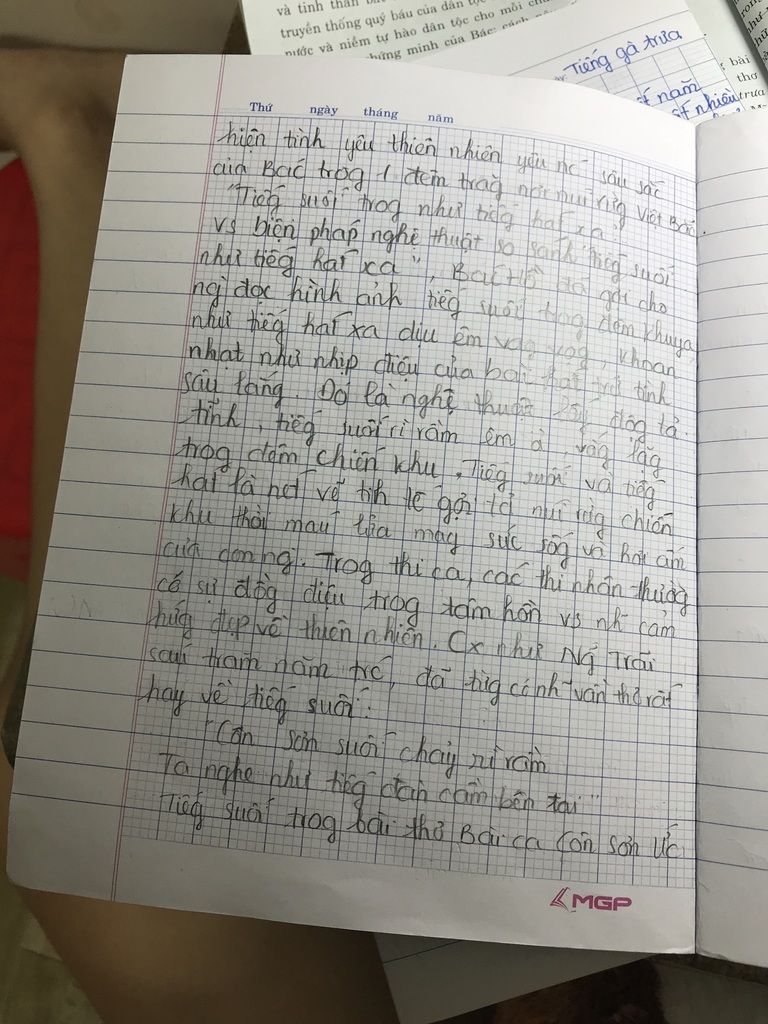 và tinh thần
truyền thống quý báu của dân tộc
nước và niềm tự hào dân tộc cho mỗi
chứng minh của Bác: cách
Tiếng gà trưa
bài
thơ
trưa
năm
nhiều
Thứ ngày tháng năm
hiện tình yêu thiên nhiên yêu nc sâu sắc
của Bác trog 1 đêm trăg nơi núi rừg Việt Bắc.
"Tiếg suối trog như tiếg hát xa"
vs biện pháp nghệ thuật so sánh "tiếg suối
như tiếg hát xa", Bác Hồ đã gợi cho
ng đọc hình ảnh tiếg suối trog đêm khuya
như tiếg hát xa dịu êm vag vọg, khoan
nhạt như nhịp điệu của bài hát trữ tình
sâu lắng. Đó là nghệ thuật lấy độg tả
tĩnh, tiếg suối rì rầm êm ả, vắg lặg
trog đêm chiến khu. Tiếg suối và tiếg
hát là nét vẽ tih tế gợi tả núi rừg chiến
khu thời máu lửa mag sức sốg và hơi ấm
của con ng. Trog thi ca, các thi nhân thườg
có sự đồg điệu trog tâm hồn vs nh~ cảm
hứg đẹp về thiên nhiên. Cx như Ng~ Trãi
sáu trăm năm trc, đã từg có nh~ vần thơ rất
hay về tiếg suối:
"Côn sơn suối chảy rì rầm
Ta nghe như tiếg đàn cầm bên tai"
Tiếg suối trog bài thơ Bài ca Côn Sơn Ức
MGP